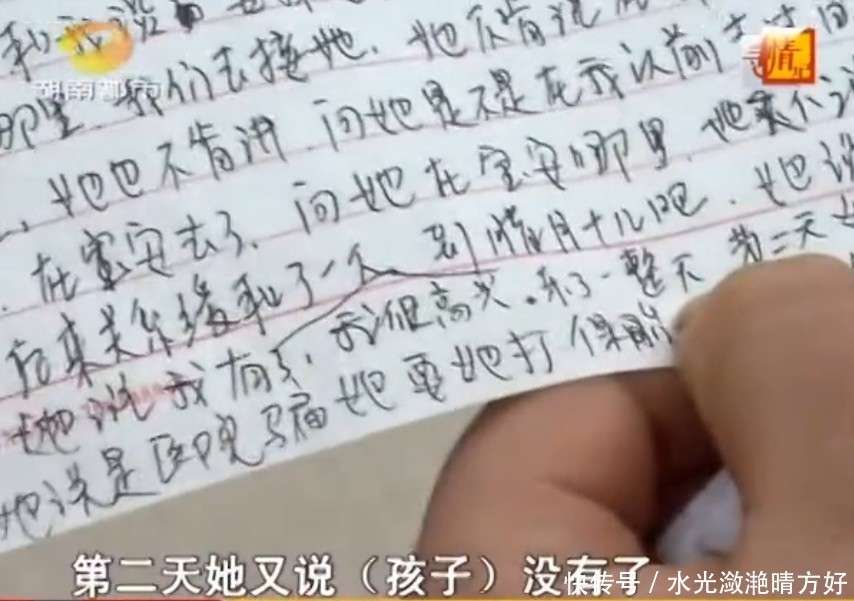 湖南都市
情
我们去接她，她不肯说
那里
她也不肯讲，问她是不是在我以前去过
在宝安去了，问她在宝安哪里，她
后来关系缓和了一
到腊月十几吧，她说
她说我有了，我很高兴。
了一整天 第二天
她说是医院骗她要她打保胎
第二天她又说（孩子）没有了
快传号／水光潋滟晴方好